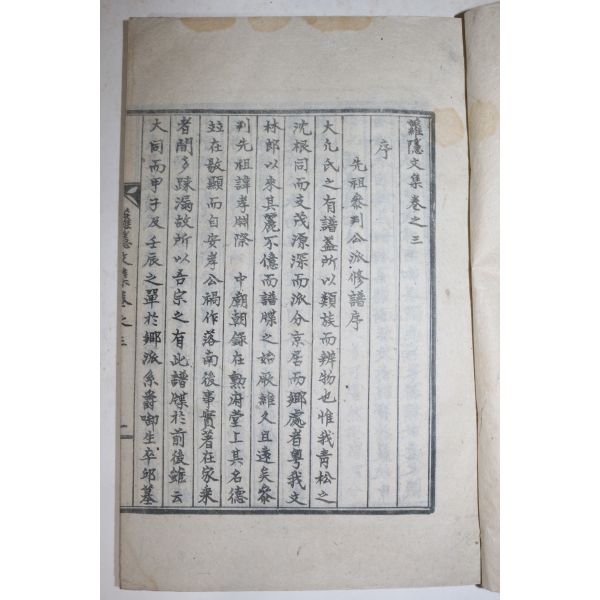 蘿隱文集卷之三
序
先祖參判公派修譜序
大凡氏之有譜盖所以類族而辨物也惟我青松之
沈根同而支茂源深而派分京居而鄉處者粤我文
林郎以來其麗不億而譜牒之始厥維久且遠矣參
判先祖諱孝淵際 中廟朝錄在勲府堂上其名德
並在敭顯而自安孝公禍作落南後事實著在家乘
者間多踈漏故所以吾宗之有此譜牒於前後雖云
大同而甲子及壬辰之單於鄉派系爵啣生卒邱墓
蘿隱文集卷之三
一